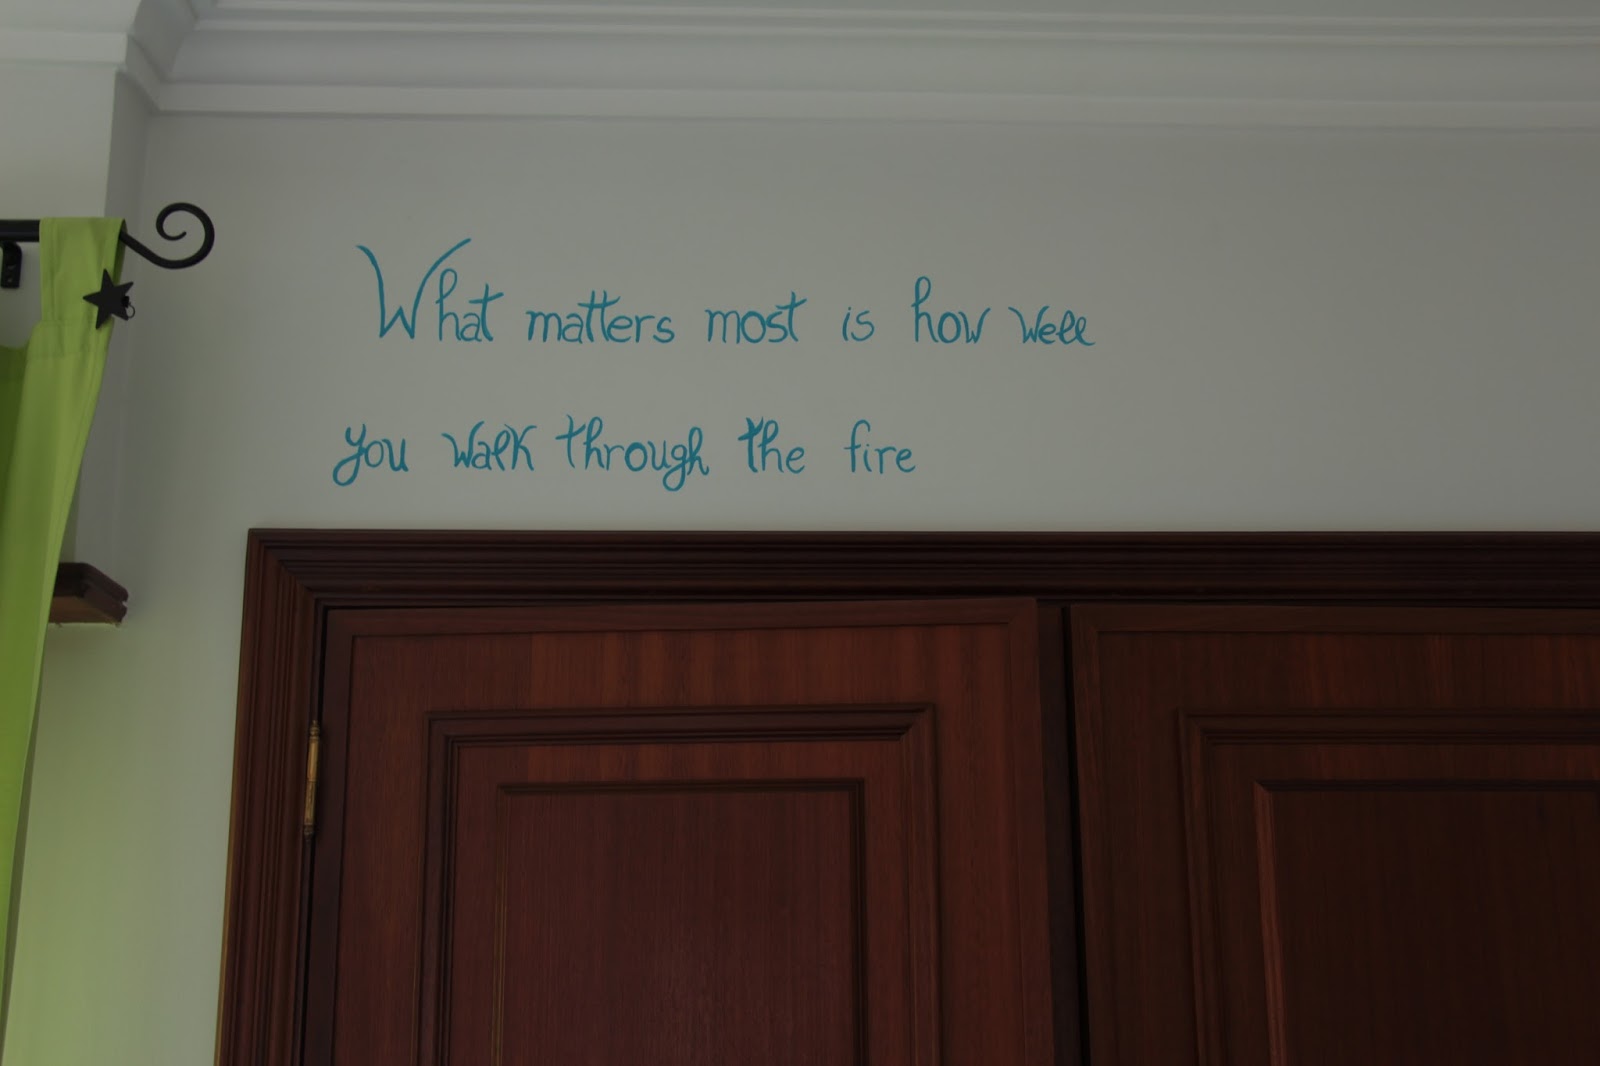 What matters most is how well
you walk through the fire